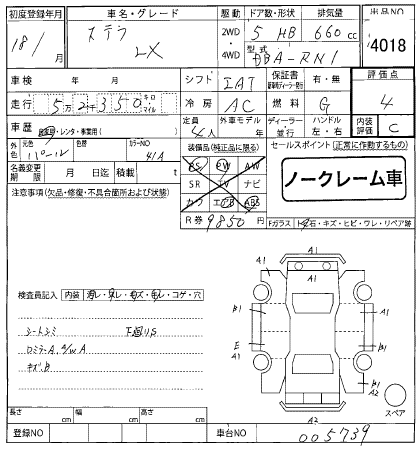 初度登録年月 車名・グレード 駆動 ドア数・形状 排気量 出品NO
18/ ステラ LX 2WD・4WD 5 HB 660cc 4018
型式 DBA-RN1
車検 年 月 シフト IAT 保証書 有・無 評価点
走行 5万2千350 キロ マイル 冷房 AC 燃料 G 4
車歴 自家・レンタ・事業用( ) 定員 4人 外車モデル 年 ディーラー 並行 ハンドル 左・右 内装評価 C
外色 元色 パール 色替 カラーNO 41A 装備品(純正品に限る) セールスポイント(正常に作動するもの)
名義変更期限 月 日迄 積載 t PS PW AW
注意事項(欠品・修復・不具合箇所および状態) SR TV ナビ ノークレーム車
カワ エアB ABS
R券 9850円 Fガラス ト石・キズ・ヒビ・ワレ・リペア跡
A1
A1 A1 A1
検査員記入 内装 汚レ・スレ・キズ・コゲ・穴
B1 B1
シートシミ 下廻りS
ロミラーA、A/WA E A1
キズ、B A1 B1 A2
B1
スペア
A2
長さ cm 幅 cm 高さ cm
登録NO 車台NO 005739